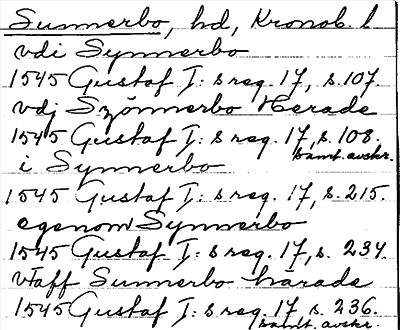 Sunnerbo, hd, Kronob. l
vdi Synnerbo
1545 Gustaf I: s reg. 17, s. 107.
vdj Szönnerbo Herade
1545 Gustaf I: s reg. 17, s. 108.
samt. avskr.
i Synnerbo
1545 Gustaf I: s reg. 17, s. 215.
egenom Synnerbo
1545 Gustaf I: s reg. 17, s. 234.
vtaff Sunnerbo härade
1545 Gustaf I: s reg. 17 s. 236.
samt. avskr.